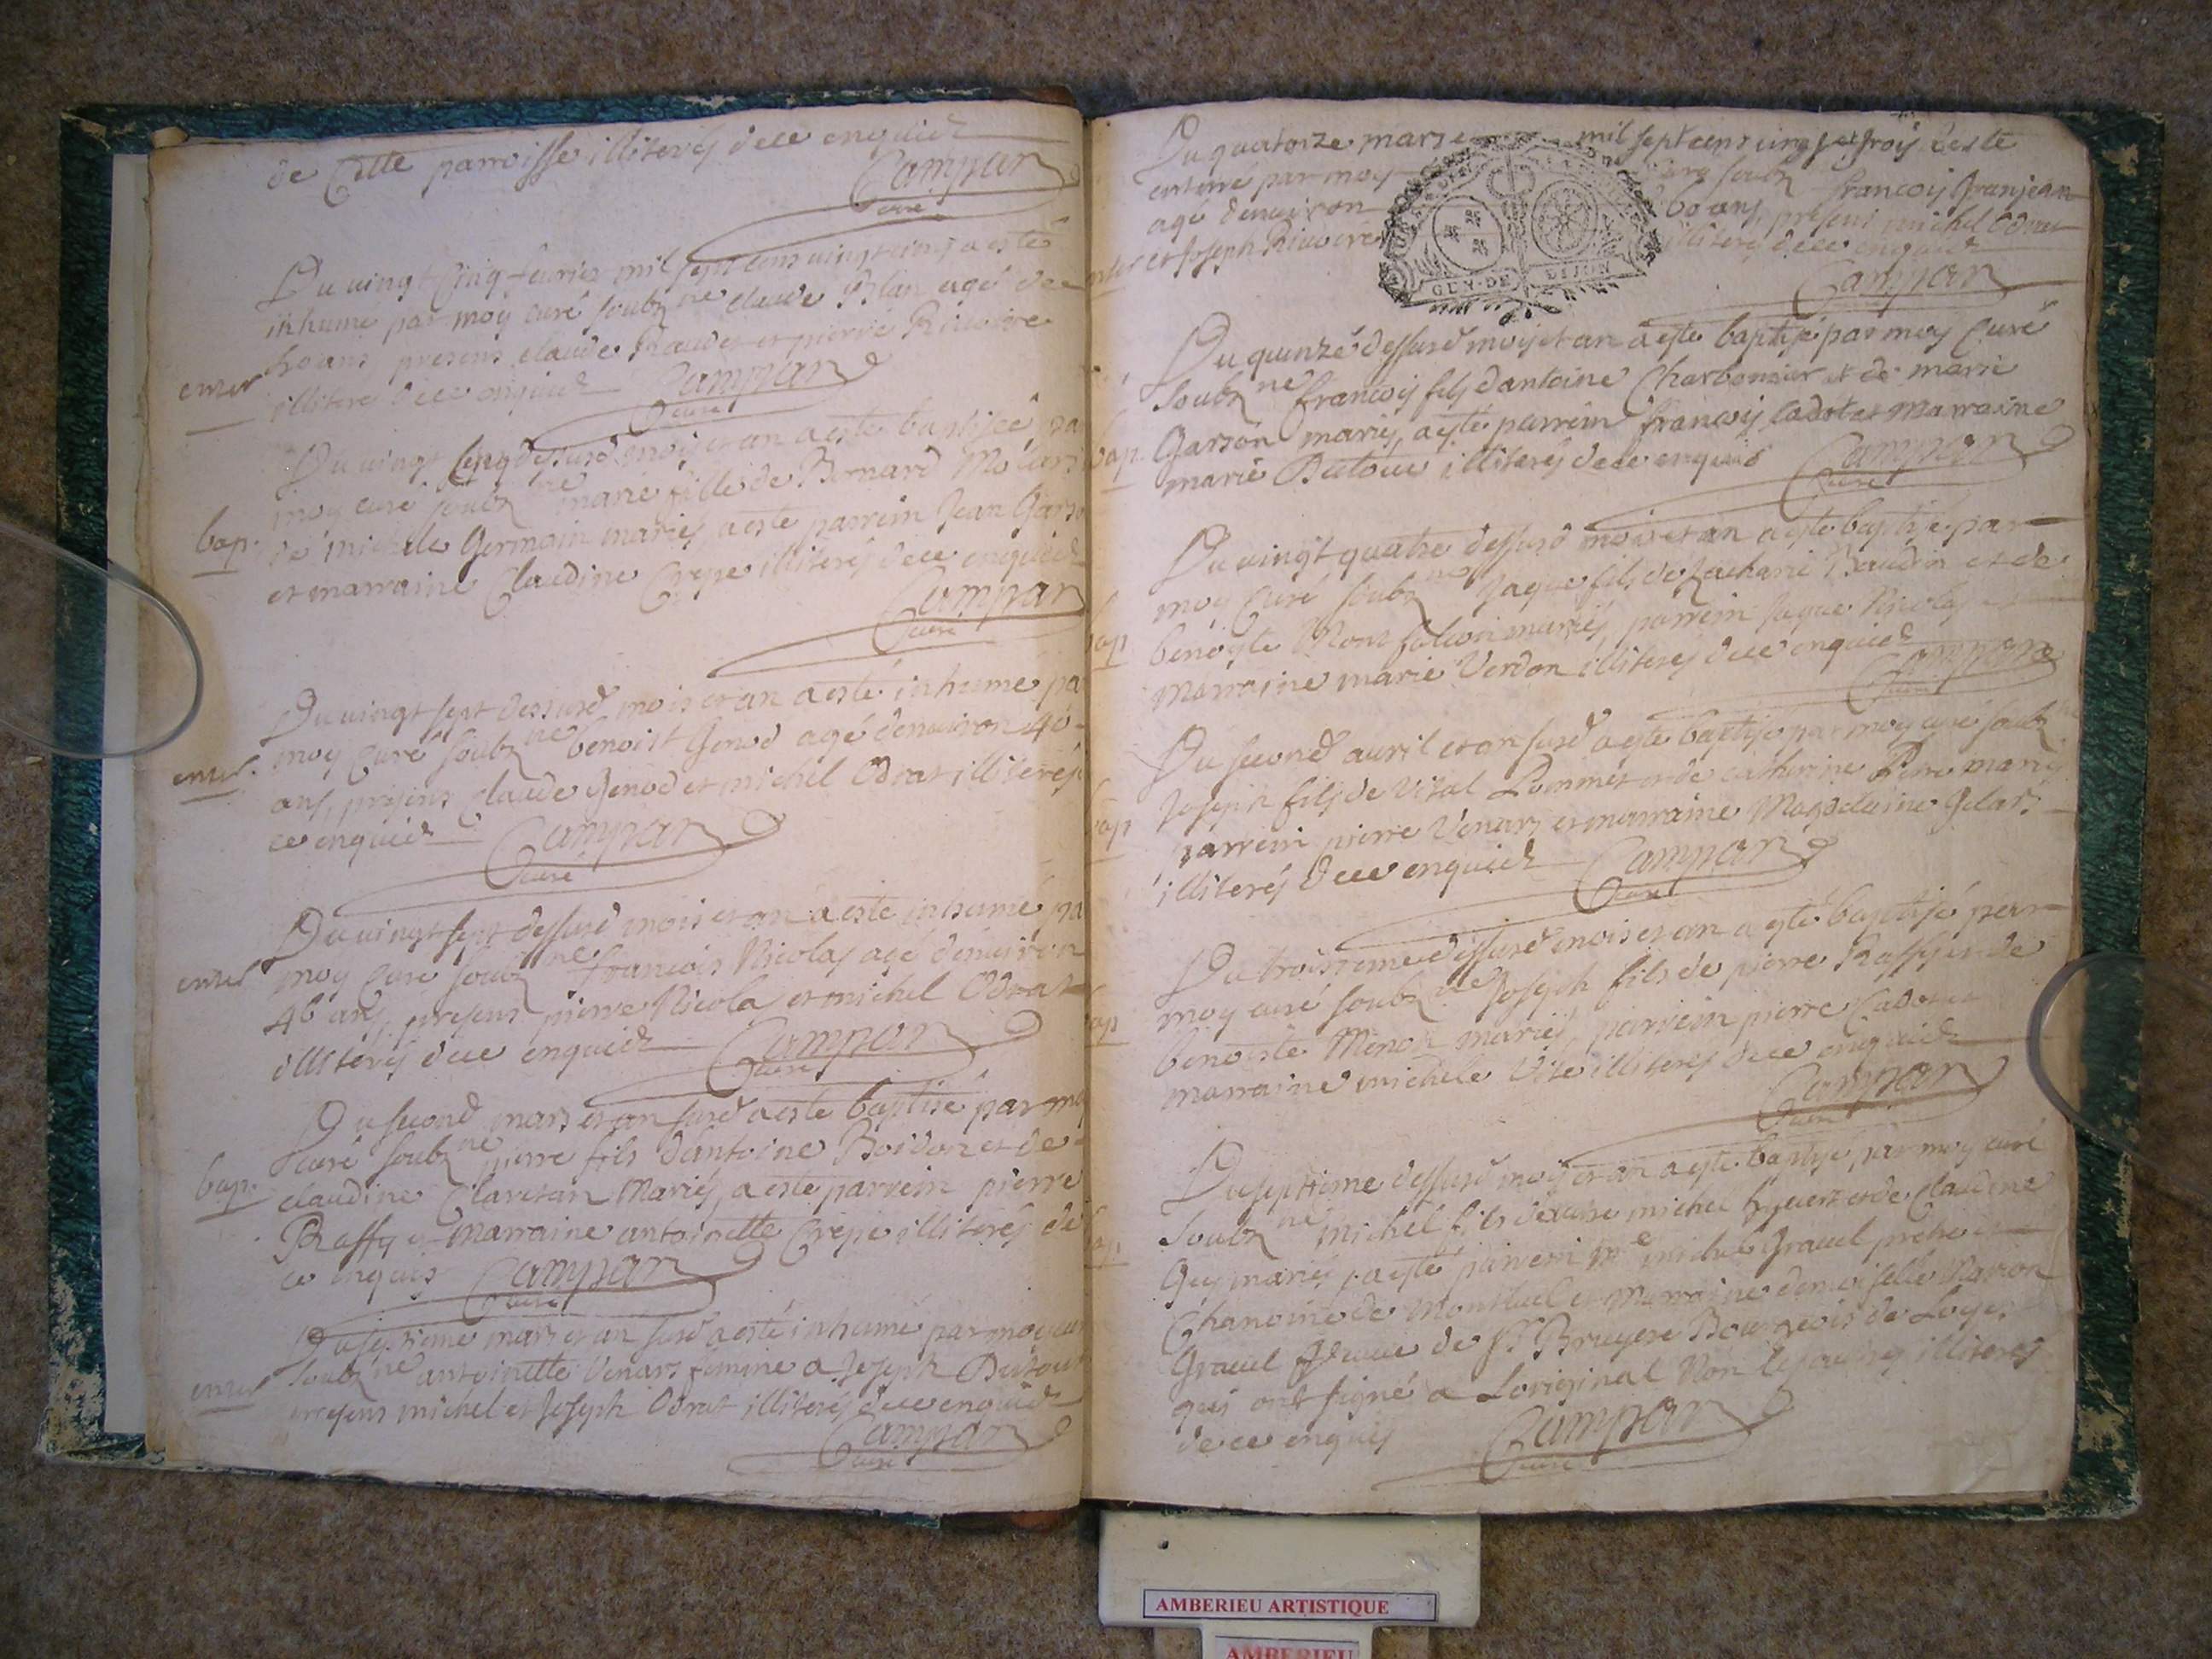 de Cette parroisse illiterés de ce enquich
Campan
curé
Du vingt Cinq feurier mil sept cens vingt trois a esté
inhume par moy curé soubz ne claude agé de
ans presens claude Baudet et pierre Riuoire
enter
illiteré de ce enquich Campan
curé
Du vingt Cinq dessusd mois et an a esté baptisée pa
moy curé soubz ne marie fille de Bernard
bap. de michele Germain mariés a esté parrein Jean Garso
et marraine Claudine Crepe illiterés de ce enquich
Campan
curé
Du vingt sept dessusd mois et an a esté inhume pa
enter. moy curé soubz ne benoist Genod agé denuiron 40
ans, presens claude Genod et michel Odrat illiterés
ce enquich Campan
curé
Du vingt sept dessusd mois et an a esté inhumé pa
enter moy curé soubz ne francois Nicolas agé denuiron
46 ans, presens pierre Nicola et michel Odrat
illiterés de ce enquich Campan
curé
Du second mars et an susd a esté baptisé par mo
curé soubz ne pierre fils dantoine Boidon et de
bap. claudine Claretan Mariés, a esté parrein pierre
Raffy et Marraine antoinette Crepe illiterés de
ce enquis Campan
curé
Du septieme mars et an susd a esté inhumé par moy cur
soubz ne antoinette Venars femme a Joseph Dutour
enter
presens michel et Joseph Odrat illiterés de ce enquich
Campan
curé
Du quatorze marse mil sept cens vingt et trois a esté
enterré par moy curé soubz francois Granjean
agé denuiron 60 ans, presens michel Odrat
enter et Joseph Riuoire illiterés de ce enquich
GEN·DE DIJON
Campan
Du quinze dessusd mois et an a esté baptisé par moy Curé
soubz ne francois fils dantoine Charbonnier et de marie
bap. Garson mariés, a esté parrein francois Cadot et Marraine
marie Dutour illiterés de ce enquis Campan
curé
Du vingt quatre dessusd mois et an a esté baptisé par
moy Curé soubz ne Jaque fils de Zacharie Baudin et de
bap benoyte Montfalcon mariés, parrein Jaque Nicolas et
Marraine marie Verdon illiterés de ce enquich
Campan
curé
Du second auril et an susd a esté baptisé par moy curé soubz ne
Joseph fils de Vital Pommet et de catherine Perre mariés
bap parrein pierre Venars et marraine Magdelaine
illiterés de ce enquich Campan
curé
Du troisieme dessusd mois et an a esté baptisé par
moy curé soubz ne Joseph fils de pierre Raffy et de
bap benoiste Menot mariés, parrein pierre Cadot et
marraine michele Vite illiterés de ce enquich
Campan
curé
Du septieme dessusd mois et an a esté baptisé par moy curé
soubz ne michel fils de michel et de claudine
bap Guy mariés, a esté parrein Mre michel Grauel pretre
Chanoine de Montluel et Marraine demoiselle Marion
Grauel de Sr Bruyere Bourgeois de Loyes
qui ont signé a Loriginal Non les illiterés
de ce enquis Campan
curé
AMBERIEU ARTISTIQUE
AMBERIEU